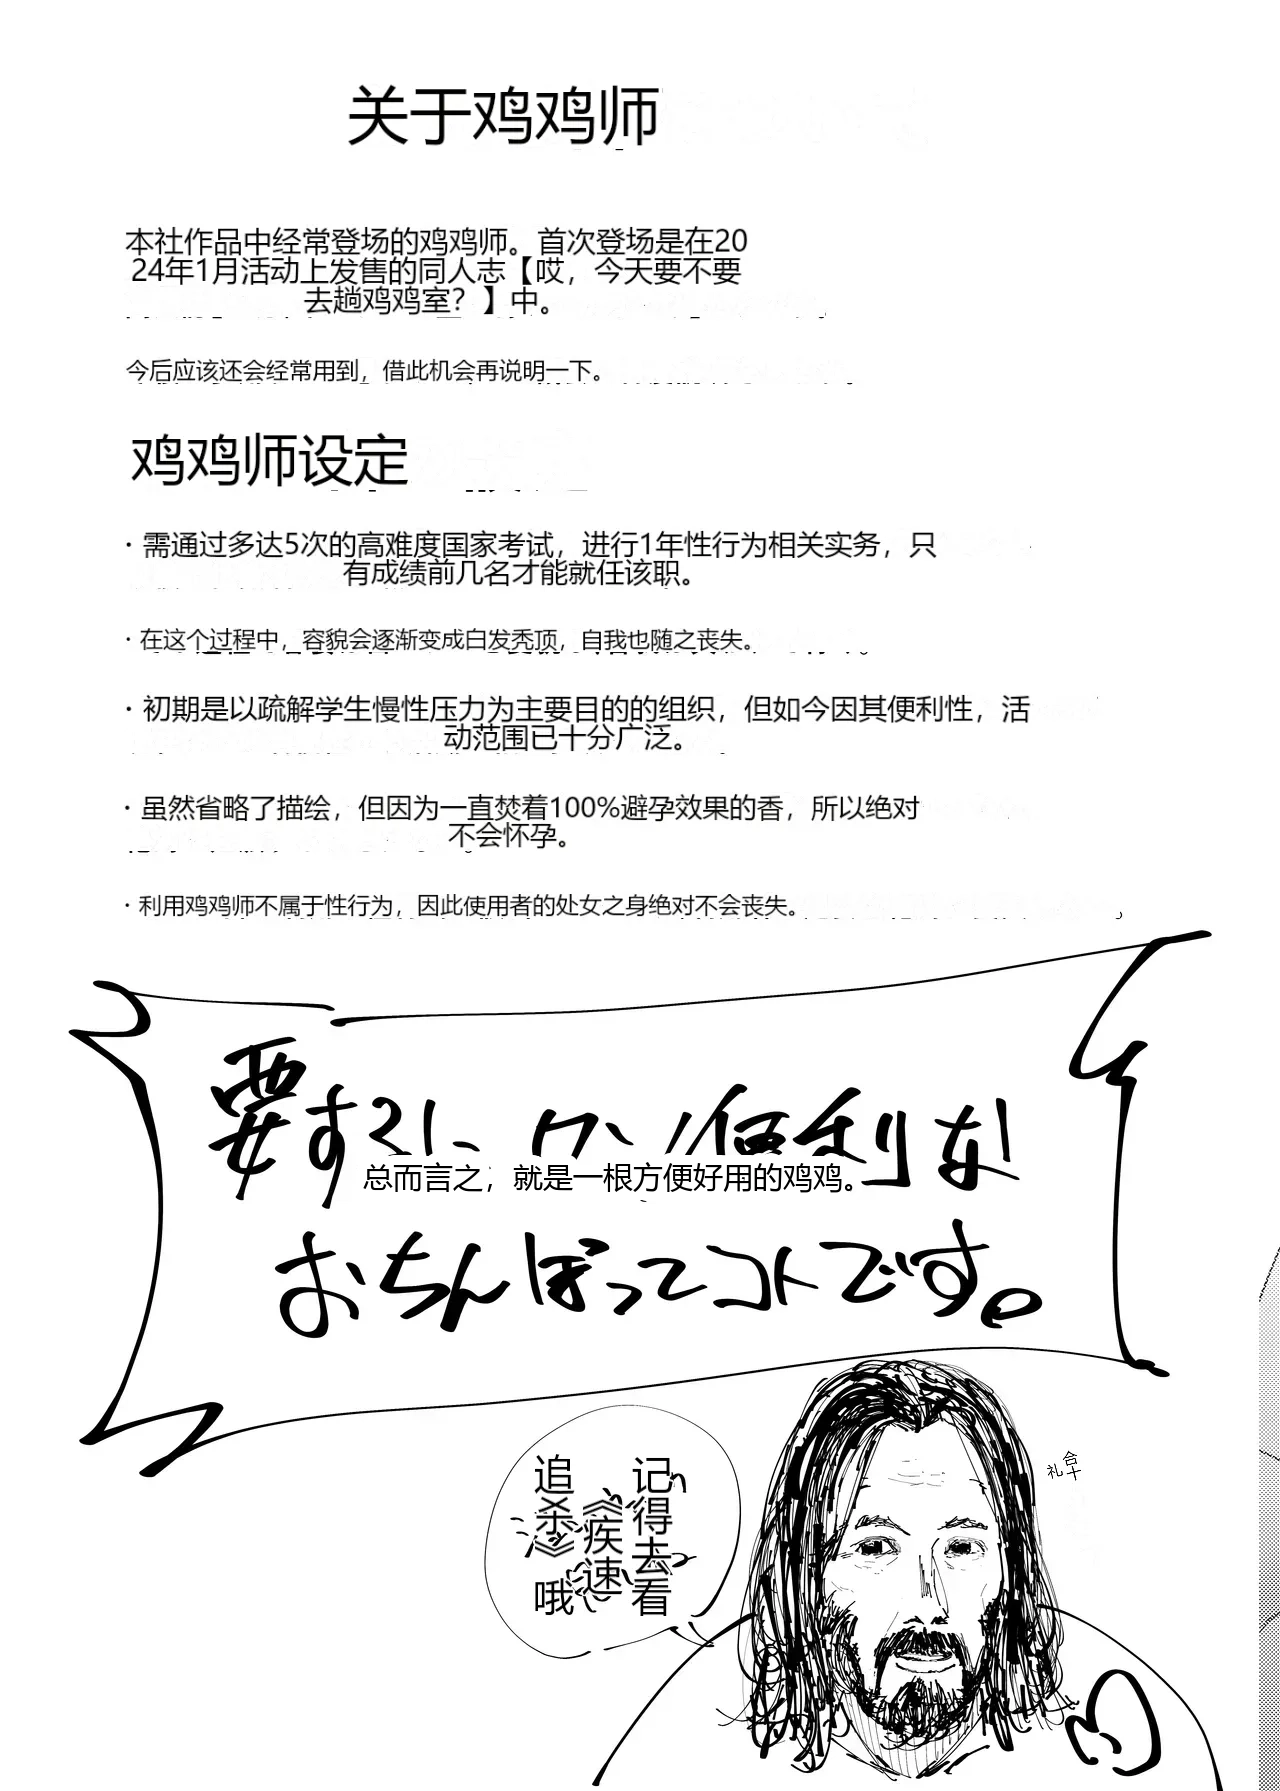 关于鸡鸡师
本社作品中经常登场的鸡鸡师。首次登场是在20
24年1月活动上发售的同人志【哎，今天要不要
去趟鸡鸡室？】中。
今后应该还会经常用到，借此机会再说明一下。
鸡鸡师设定
· 需通过多达5次的高难度国家考试，进行1年性行为相关实务，只
有成绩前几名才能就任该职。
· 在这个过程中，容貌会逐渐变成白发秃顶，自我也随之丧失。
· 初期是以疏解学生慢性压力为主要目的的组织，但如今因其便利性，活
动范围已十分广泛。
· 虽然省略了描绘，但因为一直焚着100%避孕效果的香，所以绝对
不会怀孕。
· 利用鸡鸡师不属于性行为，因此使用者的处女之身绝对不会丧失。
要するに、便利な
总而言之，就是一根方便好用的鸡鸡。
おちんぽってコトです。
记得去看
《疾速
追杀》哦
合十
礼